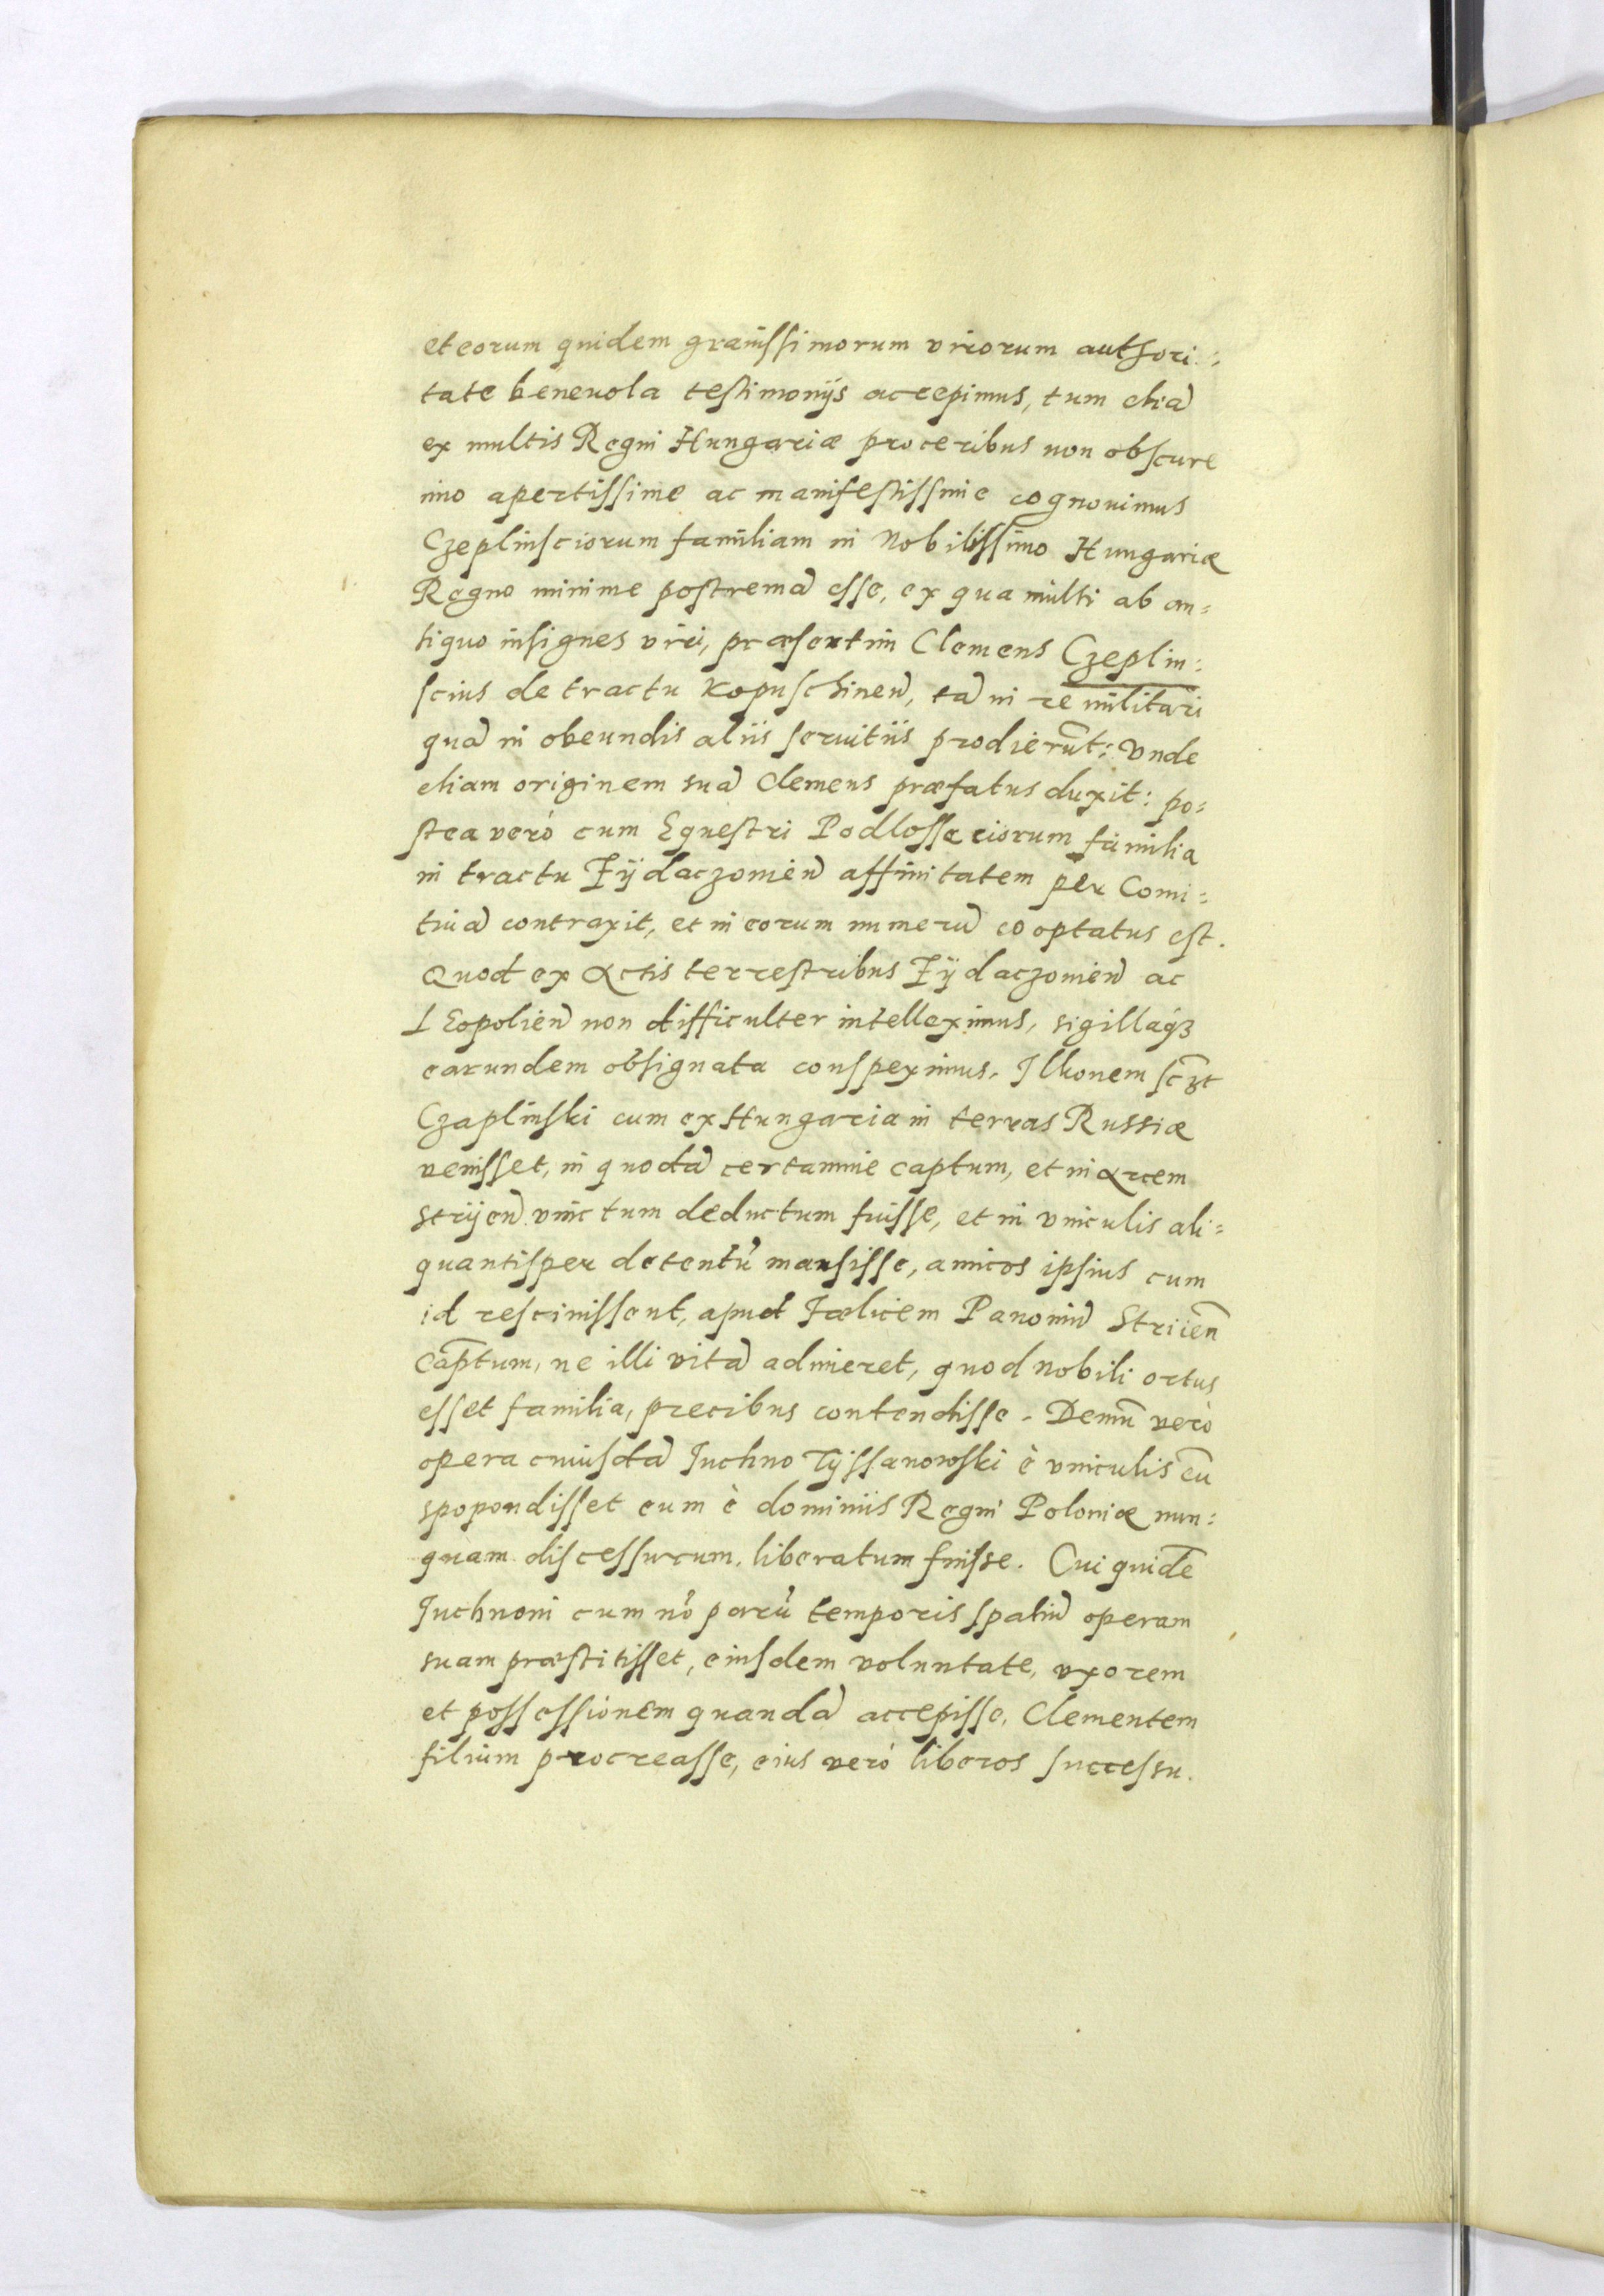 et eorum quidem grauissimorum virorum authori:
tate beneuola testimonijs accepimus, tum etiā
ex multis Regni Hungariæ proceribus non obscure
imo apertissime ac manifestissime cognouimus
Czeplinsciorum familiam in Nobilissimo Hungariæ
Regno minime postremā esse, ex qua multi ab an=
tiquo insignes viri, præsertim Clemens Czeplin:
scius de tractu Kopuschineñ, tā in re militari
quā in obeundis aliis seruitiis prodierūt: Vnde
etiam originem suā Clemens præfatus duxit: po=
stea verò cum Equestri Podlosseciorum familia
in tractu Zÿdaczouieñ affinitatem per Comi=
tiuā contraxit, et in eorum numerū cooptatus est.
Quod ex Actis terrestribus Zÿdaczouieñ ac
LEopolieñ non difficulter intelleximus, sigillaq3
earundem obsignata conspeximus. Ilkonem sc̄3t
Czaplinski cum ex Hungaria in terras Russiæ
venisset, in quodā certamine captum, et in Arcem
strijeñ vinctum deductum fuisse, et in vinculis ali=
quantisper detentū mansisse, amicos ipsius cum
id resciuissent, apud Fælicem Panoniū Striień
Cap̄tum, ne illi vitā adimeret, quod nobili ortus
esset familia, precibus contendisse. Demū verò
opera cuiusdā Juchno Tyssanowski è vinculis cū
spopondisset eum è dominiis Regni Poloniæ nun:
quam discessurum, liberatum fuisse. Cui quidē
Juchnoni cum nō parū temporis spatiū operam
suam præstitisset, eiusdem voluntate, vxorem
et possessionem quandā accepisse, Clementem
filium procreasse, eius verò liberos successu.